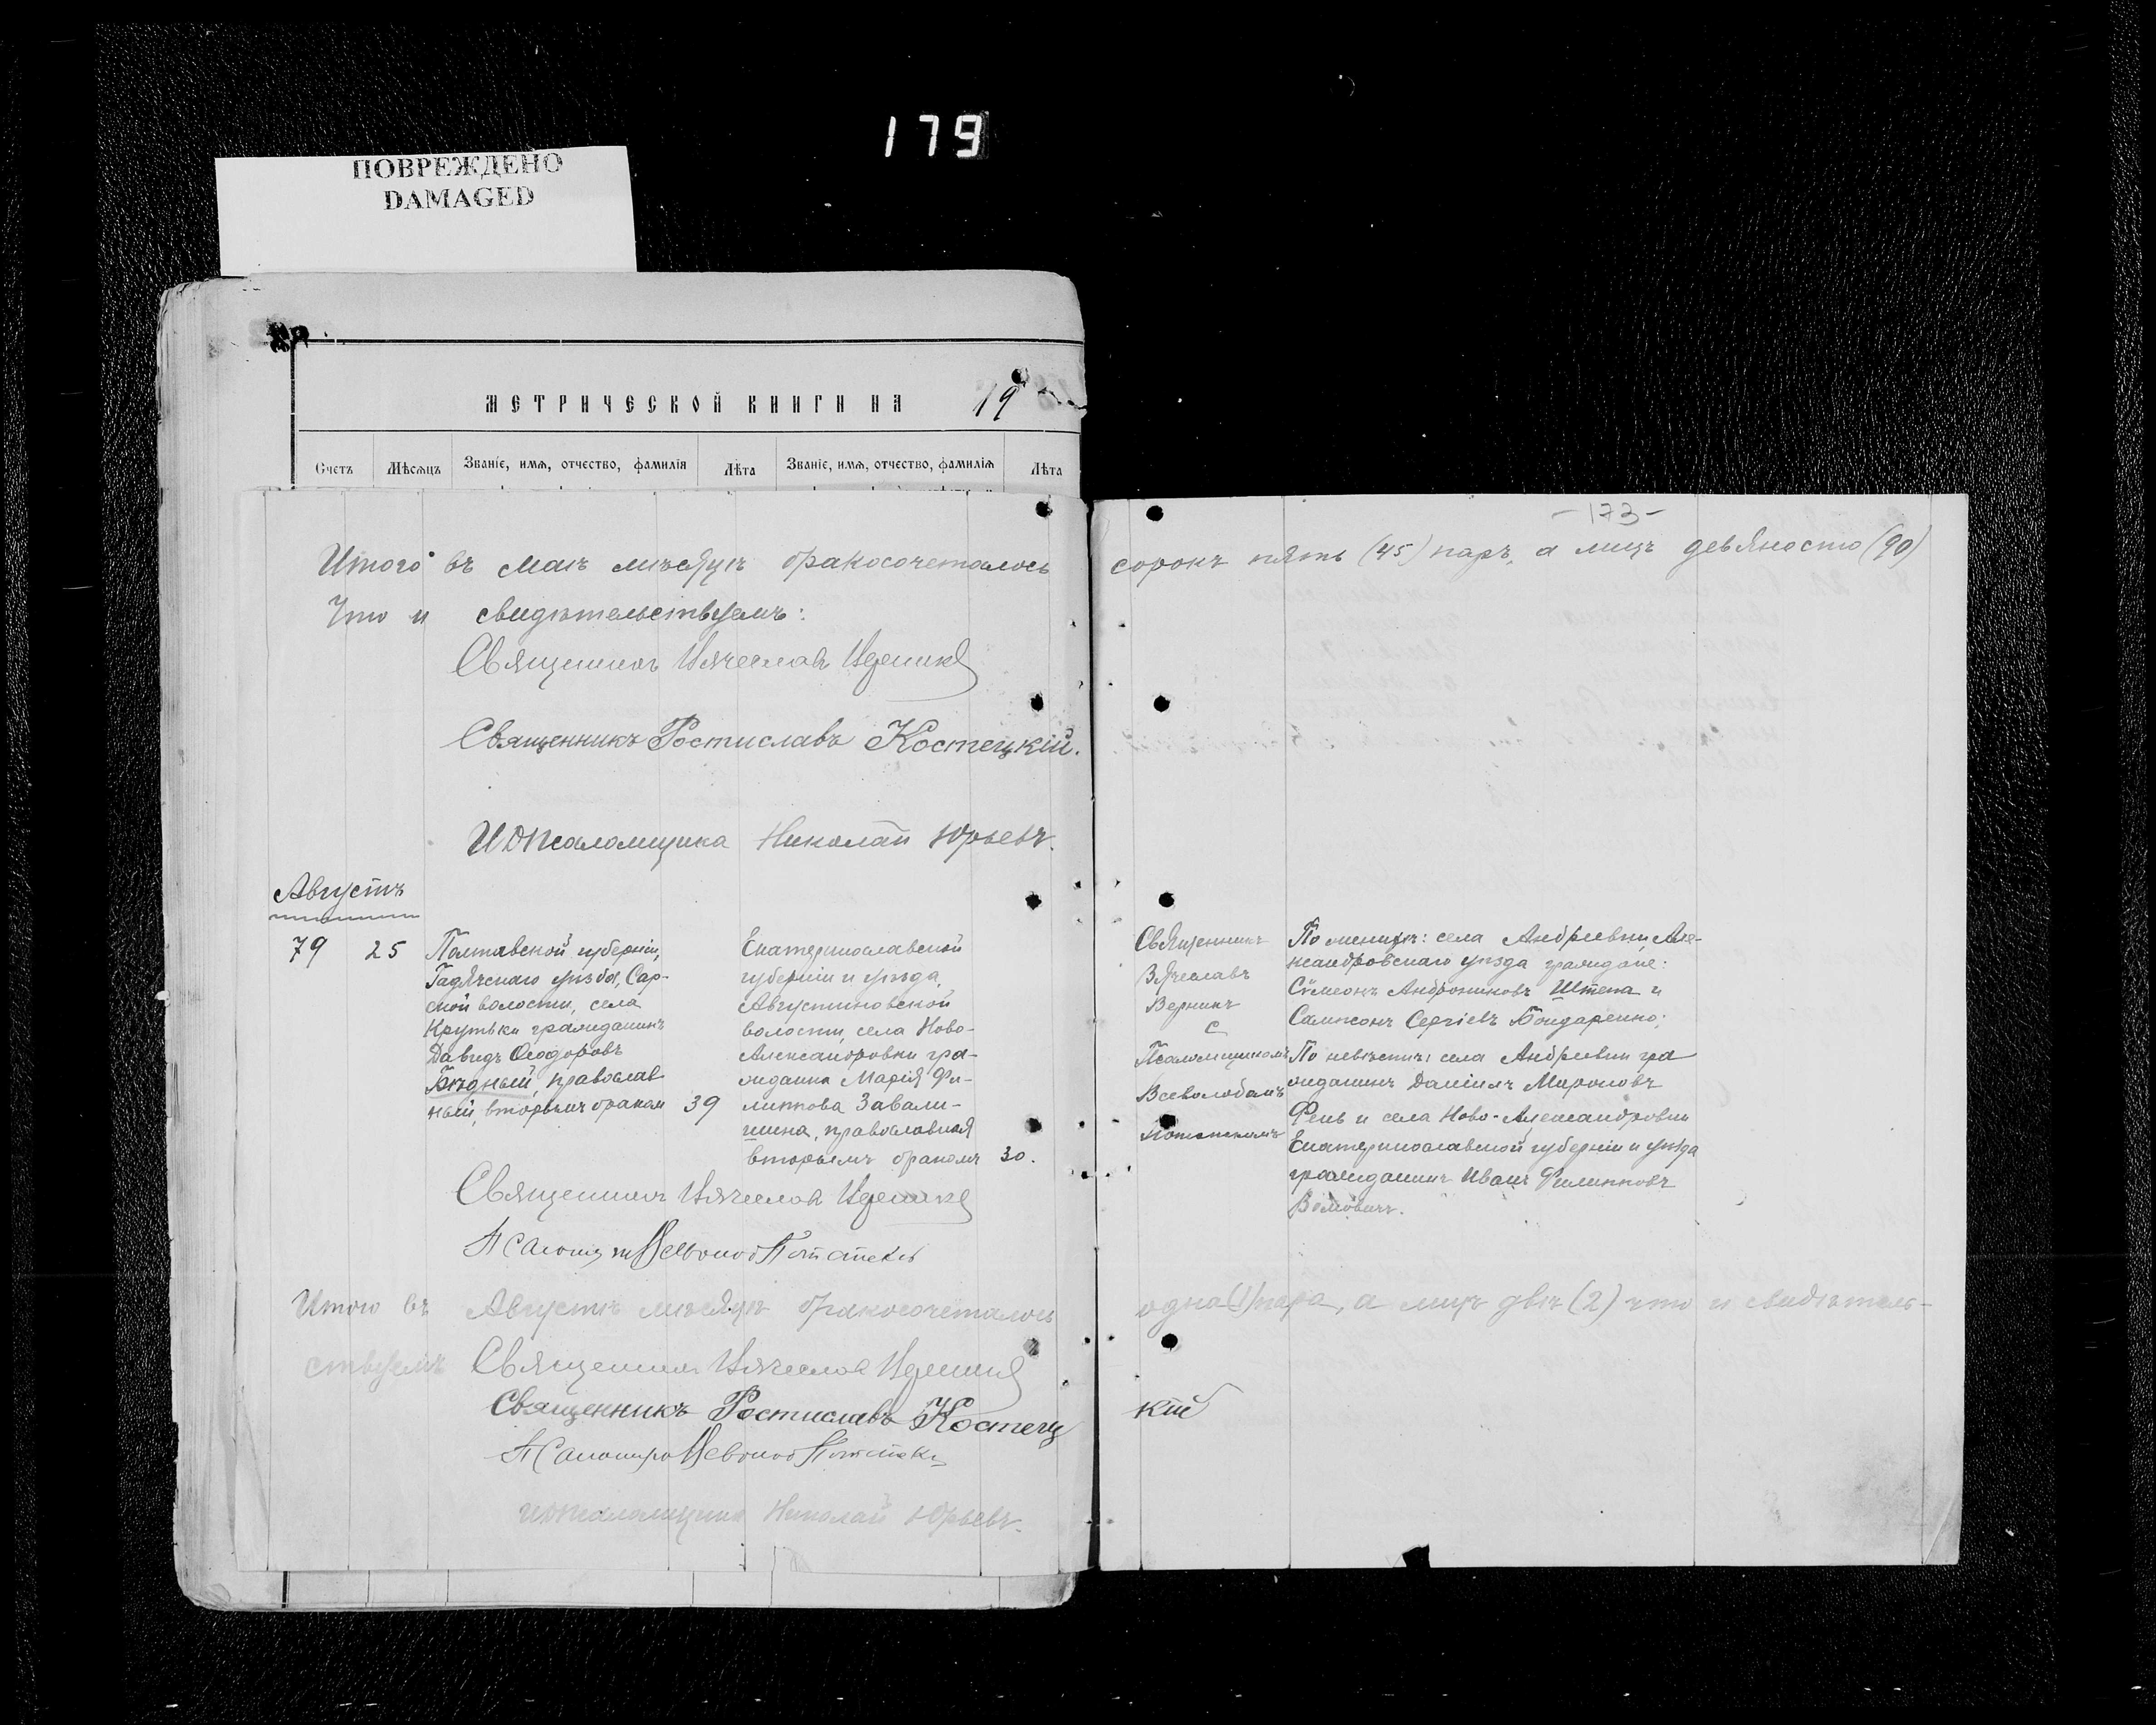 179
ПОВРЕЖДЕНО
DAMAGED
МЕТРИЧЕСКОЙ КНИГИ НА 19
Счетъ Мѣсяцъ Званіе, имя, отчество, фамилія Лѣта Званіе, имя, отчество, фамилія Лѣта
-173-
Итого въ маѣ мѣсяцѣ бракосочеталось сорокъ пять (45) паръ, а лицъ девяносто (90)
Что и свидѣтельствуемъ:
Священникъ Вячеславъ Верникъ
Священникъ Ростиславъ Костецкій.
ИДПсаломщика Николай Юрьевъ.
Августъ
79 25
Полтавской губерніи,
Гадячскаго уѣзда, Сар-
ской волости, села
Крутьки гражданинъ
Давидъ Ѳеодоровъ
Бѣдный, православ
ный, вторымъ бракомъ 39
Екатеринославской
губерніи и уѣзда,
Августиновской
волости, села Ново-
Александровки гра-
жданка Марія Фи-
липпова Завали-
шина, православная
вторымъ бракомъ 30.
Священникъ
Вячеславъ
Верникъ
с
Псаломщикомъ
Всеволодомъ
По женихѣ: села Андреевки, Але-
ксандровскаго уѣзда граждане:
Сѵмеонъ Андрониковъ Штепа и
Сампсонъ Сергіевъ Бондаренко;
По невѣстѣ: села Андреевки гра
жданинъ Даніилъ Мироновъ
Рень и села Ново-Александровки
Екатеринославской губерніи и уѣзда
гражданинъ Иванъ Филипповъ
Священникъ Вячеславъ Верникъ
Псаломщ Всеволод Потапекъ
Итого въ Августѣ мѣсяцѣ бракосочеталось одна (1) пара, а лицъ двѣ (2) что и свидѣтель-
ствуемъ Священникъ Вячеславъ Верникъ
Священникъ Ростиславъ Костецкій
ИДПсаломщика Николай Юрьевъ.